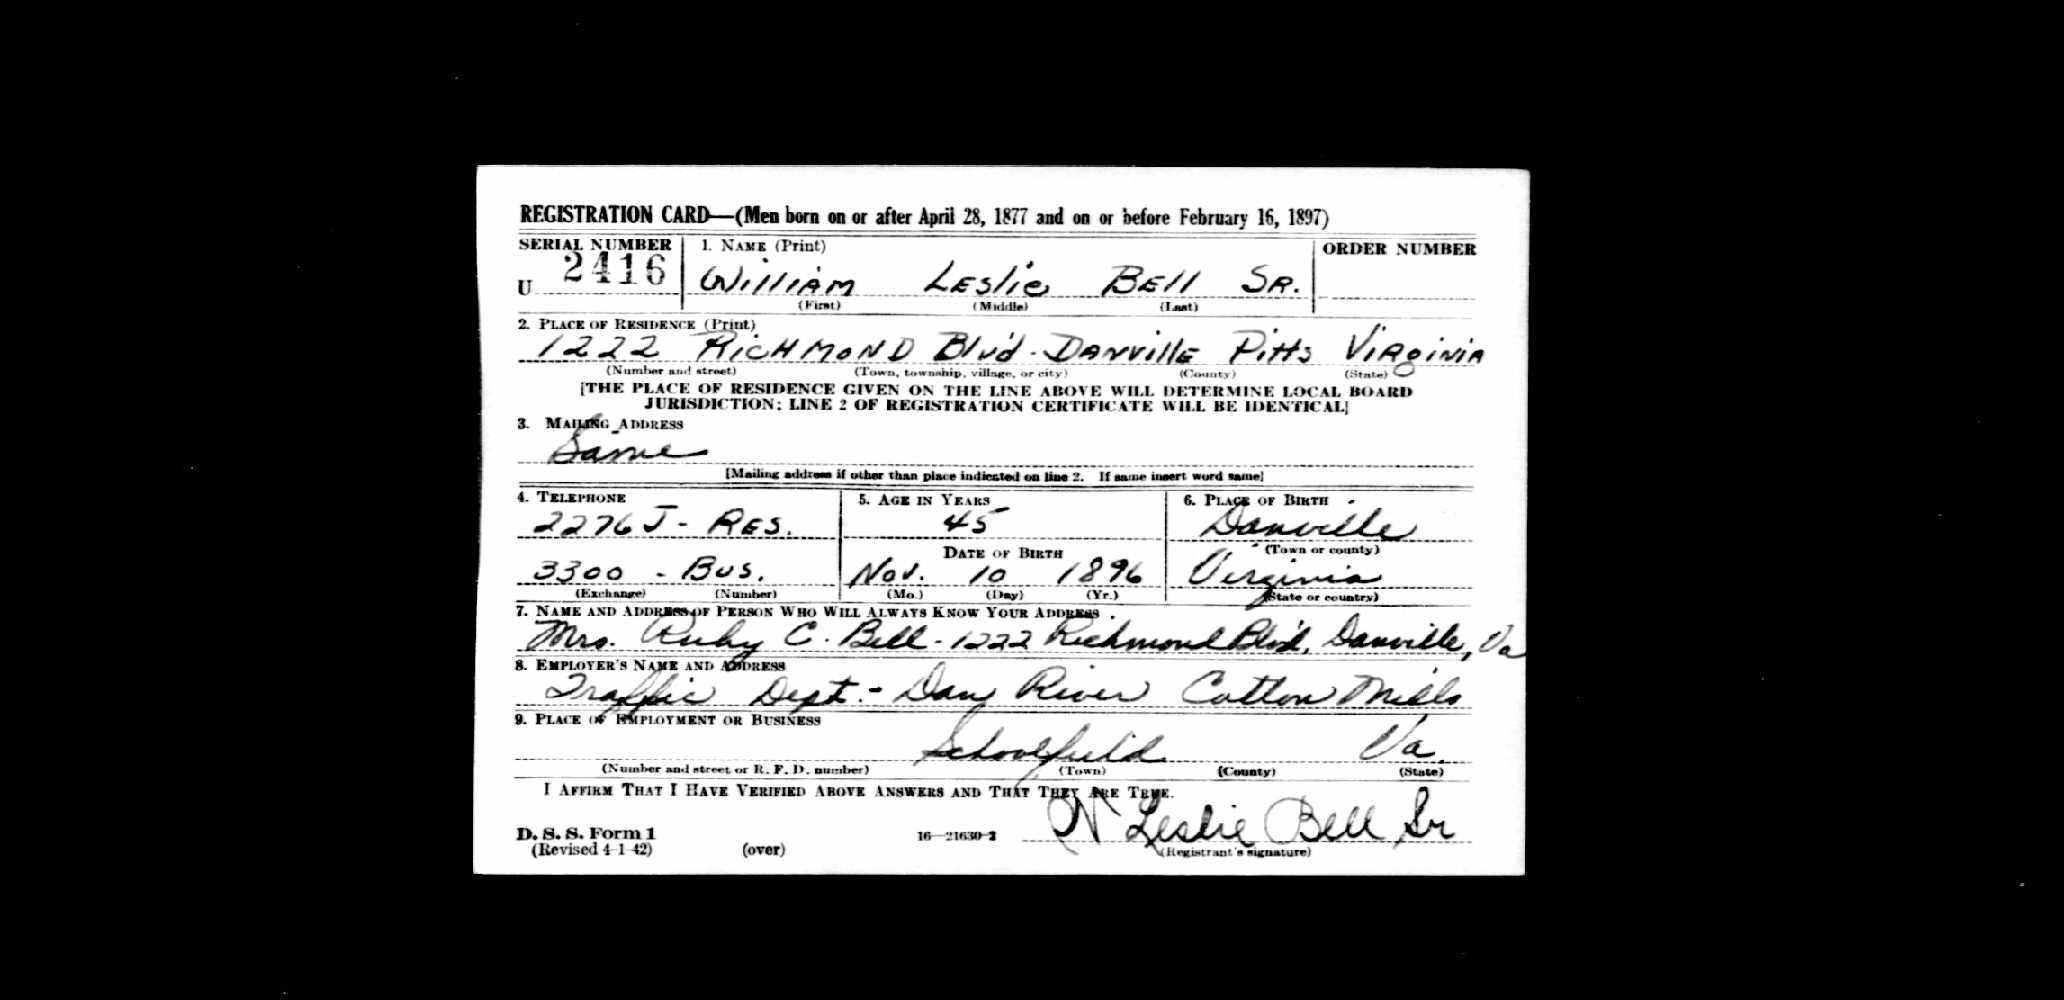 REGISTRATION CARD—(Men born on or after April 28, 1877 and on or before February 16, 1897)
SERIAL NUMBER 1. NAME (Print) ORDER NUMBER
U 2416 William Leslie Bell Sr.
(First) (Middle) (Last)
2. PLACE OF RESIDENCE (Print)
1222 Richmond Blv'd - Danville Pitts Virginia
(Number and street) (Town, township, village, or city) (County) (State)
[THE PLACE OF RESIDENCE GIVEN ON THE LINE ABOVE WILL DETERMINE LOCAL BOARD
JURISDICTION; LINE 2 OF REGISTRATION CERTIFICATE WILL BE IDENTICAL]
3. MAILING ADDRESS
Same
[Mailing address if other than place indicated on line 2. If same insert word same]
4. TELEPHONE 5. AGE IN YEARS 6. PLACE OF BIRTH
2276 J - Res. 45 Danville
DATE OF BIRTH (Town or county)
3300 - Bus. Nov. 10 1896 Virginia
(Exchange) (Number) (Mo.) (Day) (Yr.) (State or country)
7. NAME AND ADDRESS OF PERSON WHO WILL ALWAYS KNOW YOUR ADDRESS
Mrs. Ruby C. Bell - 1222 Richmond Blvd, Danville, Va
8. EMPLOYER'S NAME AND ADDRESS
Traffic Dept. - Dan River Cotton Mills
9. PLACE OF EMPLOYMENT OR BUSINESS
Schoolfield Va.
(Number and street or R. F. D. number) (Town) (County) (State)
I AFFIRM THAT I HAVE VERIFIED ABOVE ANSWERS AND THAT THEY ARE TRUE.
D. S. S. Form 1 16—21630-2 W Leslie Bell Sr
(Revised 4-1-42) (over) (Registrant's signature)